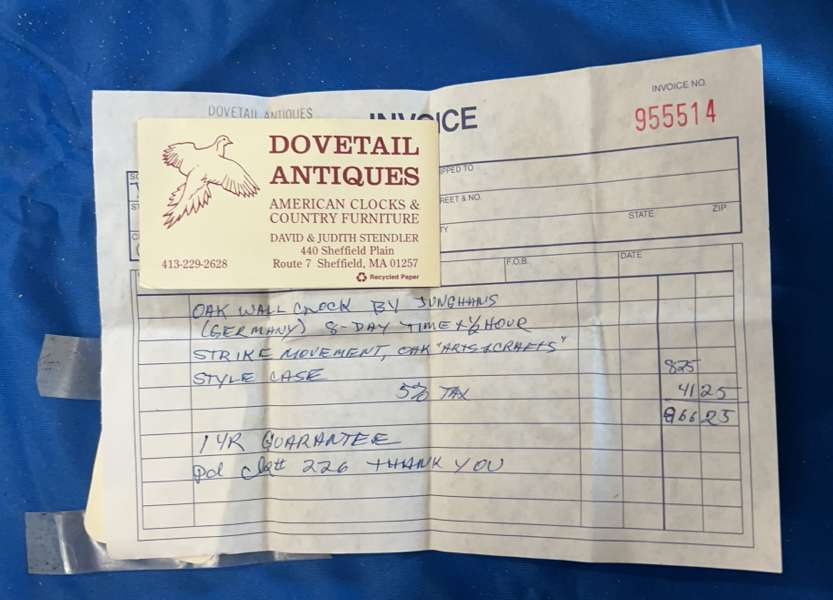 DOVETAIL ANTIQUES
INVOICE
INVOICE NO.
955514
DOVETAIL
ANTIQUES
AMERICAN CLOCKS &
COUNTRY FURNITURE
DAVID & JUDITH STEINDLER
440 Sheffield Plain
413-229-2628
Route 7 Sheffield, MA 01257
Recycled Paper
TO
& NO.
STATE
ZIP
F.O.B.
DATE
OAK WALL CLOCK BY JUNGHANS
(GERMANY) 8-DAY TIME & ½ HOUR
STRIKE MOVEMENT, OAK "ARTS & CRAFTS"
STYLE CASE
825
5% TAX
41 25
866 25
1 YR GUARANTEE
Pd ck# 226 THANK YOU